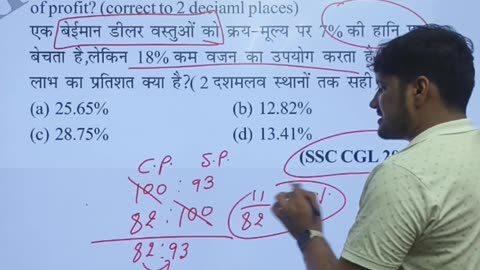 of profit? (correct to 2 deciaml places)
एक बेईमान डीलर वस्तुओं को क्रय-मूल्य पर 7% की हानि
बेचता है,लेकिन 18% कम वजन का उपयोग करता है
लाभ का प्रतिशत क्या है?( 2 दशमलव स्थानों तक सही
(a) 25.65% (b) 12.82%
(c) 28.75% (d) 13.41%
(SSC CGL
C.P. S.P.
100 : 93
82 : 100
82 : 93
11
82